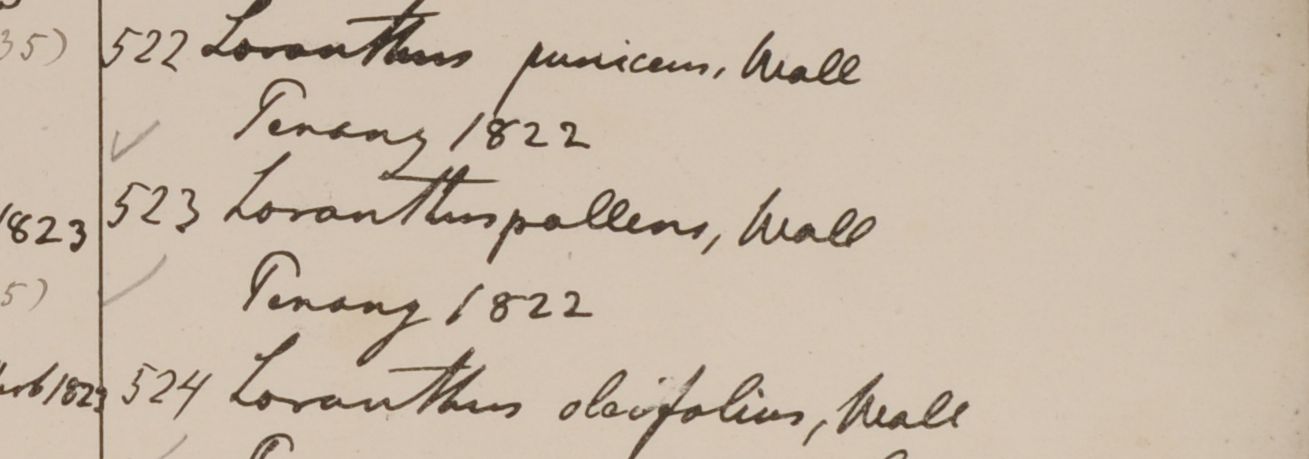 35) 522 Loranthus puniceus, Wall
Penang 1822
1823 523 Loranthus pallens, Wall
5) Penang 1822
1823 524 Loranthus oleifolius, Wall